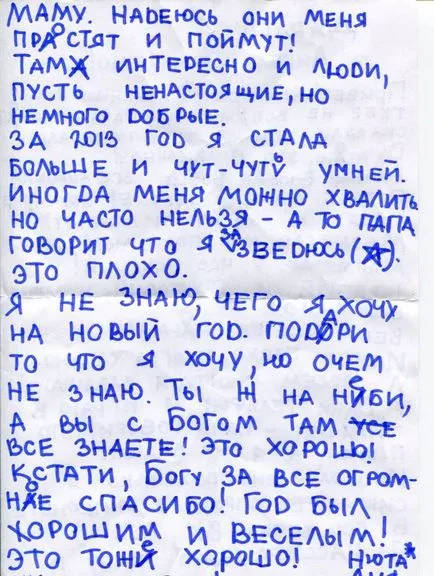 МАМУ. НАДЕЮСЬ ОНИ МЕНЯ
ПРОСТЯТ И ПОЙМУТ!
ТАМ ИНТЕРЕСНО И ЛЮДИ,
ПУСТЬ НЕНАСТОЯЩИЕ, НО
НЕМНОГО ДОБРЫЕ.
ЗА 2013 ГОД Я СТАЛА
БОЛЬШЕ И ЧУТ-ЧУТЬ УМНЕЙ.
ИНОГДА МЕНЯ МОЖНО ХВАЛИТЬ
НО ЧАСТО НЕЛЬЗЯ - А ТО ПАПА
ГОВОРИТ ЧТО Я ЗАЗВЕДЮСЬ (Я).
ЭТО ПЛОХО.
Я НЕ ЗНАЮ, ЧЕГО Я ХОЧУ
НА НОВЫЙ ГОД. ПОДАРИ
ТО ЧТО Я ХОЧУ, НО ОЧЕМ
НЕ ЗНАЮ. ТЫ Ж НА НЕБИ,
А ВЫ С БОГОМ ТАМ УСЕ
ВСЕ ЗНАЕТЕ! ЭТО ХОРОШО!
КСТАТИ, БОГУ ЗА ВСЕ ОГРОМ-
НОЕ СПАСИБО! ГОД БЫЛ
ХОРОШИМ И ВЕСЕЛЫМ!
ЭТО ТОЖЕ ХОРОШО! НЮТА*